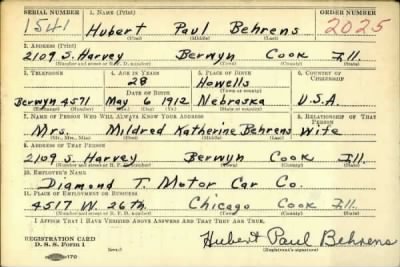 SERIAL NUMBER 1. NAME (Print) ORDER NUMBER
1541 Hubert Paul Behrens 2025
(First) (Middle) (Last)
2. ADDRESS (Print)
2109 S. Harvey Berwyn Cook Ill.
(Number and street or R. F. D. number) (Town) (County) (State)
3. TELEPHONE 4. AGE IN YEARS 5. PLACE OF BIRTH 6. COUNTRY OF CITIZENSHIP
28 Howells
DATE OF BIRTH (Town or county)
Berwyn 4571 May 6 1912 Nebraska U.S.A.
(Mo.) (Day) (Yr.) (State or country)
7. NAME OF PERSON WHO WILL ALWAYS KNOW YOUR ADDRESS 8. RELATIONSHIP OF THAT PERSON
Mrs. Mildred Katherine Behrens Wife
(Mr., Mrs., Miss) (First) (Middle) (Last)
9. ADDRESS OF THAT PERSON
2109 S. Harvey Berwyn Cook Ill.
(Number and street or R. F. D. number) (Town) (County) (State)
10. EMPLOYER'S NAME
Diamond T. Motor Car Co.
11. PLACE OF EMPLOYMENT OR BUSINESS
4517 W. 26th Chicago Cook Ill.
(Number and street or R. F. D. number) (Town) (County) (State)
I AFFIRM THAT I HAVE VERIFIED ABOVE ANSWERS AND THAT THEY ARE TRUE.
REGISTRATION CARD
D. S. S. Form 1
Hubert Paul Behrens